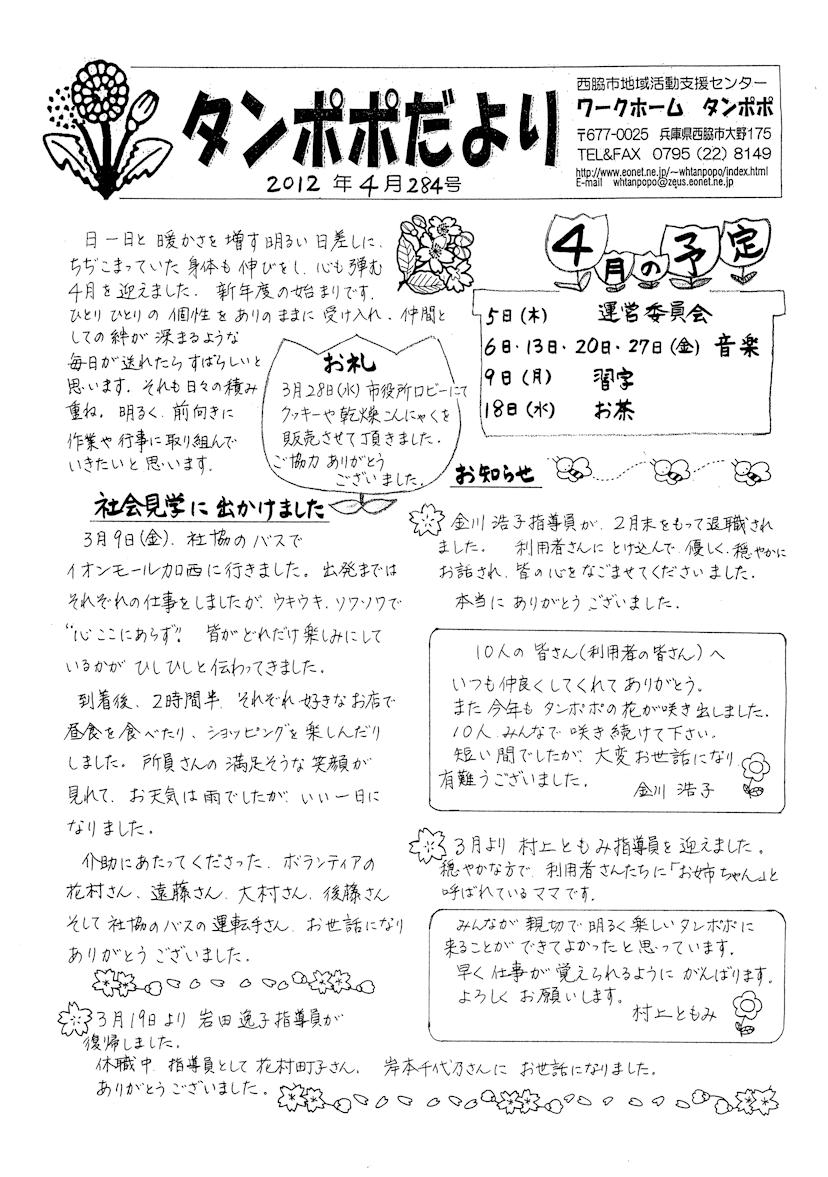 タンポポだより
2012年4月284号
西脇市地域活動支援センター
ワークホーム タンポポ
〒677-0025 兵庫県西脇市大野175
TEL&FAX 0795（22）8149
http://www.eonet.ne.jp/~whtanpopo/index.html
E-mail whtanpopo@zeus.eonet.ne.jp
日一日と暖かさを増す明るい日差しに、
ちぢこまっていた身体も伸びをし、心も弾む
4月を迎えました。新年度の始まりです。
ひとりひとりの個性をありのままに受け入れ、仲間と
しての絆が深まるような
毎日が送れたらすばらしいと
思います。それも日々の積み
重ね。明るく、前向きに
作業や行事に取り組んで
いきたいと思います。
お礼
3月28日(水)市役所ロビーにて
クッキーや乾燥こんにゃくを
販売させて頂きました。
ご協力ありがとう
ございました。
4月の予定
5日(木) 運営委員会
6日・13日・20日・27日(金) 音楽
9日(月) 習字
18日(水) お茶
社会見学に出かけました
3月9日(金)、社協のバスで
イオンモール加西に行きました。出発までは
それぞれの仕事をしましたが、ウキウキ、ソワソワで
“心ここにあらず”！ 皆がどれだけ楽しみにして
いるかがひしひしと伝わってきました。
到着後、2時間半、それぞれ好きなお店で
昼食を食べたり、ショッピングを楽しんだり
しました。所員さんの満足そうな笑顔が
見れて、お天気は雨でしたが、いい一日に
なりました。
介助にあたってくださった、ボランティアの
花村さん、遠藤さん、大村さん、後藤さん
そして社協のバスの運転手さん、お世話になり
ありがとうございました。
3月19日より岩田逸子指導員が
復帰しました。
休職中、指導員として花村町子さん、岸本千代乃さんにお世話になりました。
ありがとうございました。
お知らせ
金川浩子指導員が、2月末をもって退職され
ました。 利用者さんにとけ込んで、優しく、穏やかに
お話され、皆の心をなごませてくださいました。
本当にありがとうございました。
10人の皆さん(利用者の皆さん)へ
いつも仲良くしてくれてありがとう。
また今年もタンポポの花が咲き出しました。
10人、みんなで咲き続けて下さい。
短い間でしたが、大変お世話になり
有難うございました。
金川 浩子
3月より村上ともみ指導員を迎えました。
穏やかな方で、利用者さんたちに「お姉ちゃん」と
呼ばれているママです。
みんなが親切で明るく楽しいタンポポに
来ることができてよかったと思っています。
早く仕事が覚えられるようにがんばります。
よろしくお願いします。
村上ともみ